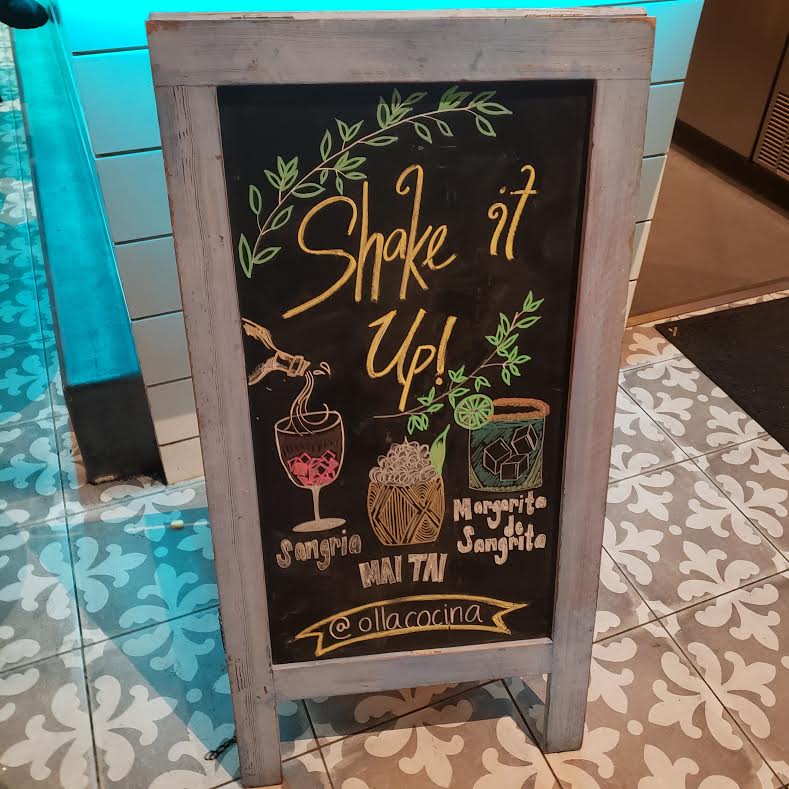 Shake it
Up!
Sangria
MAI TAI
Margarita
de
Sangrita
@ollacocina